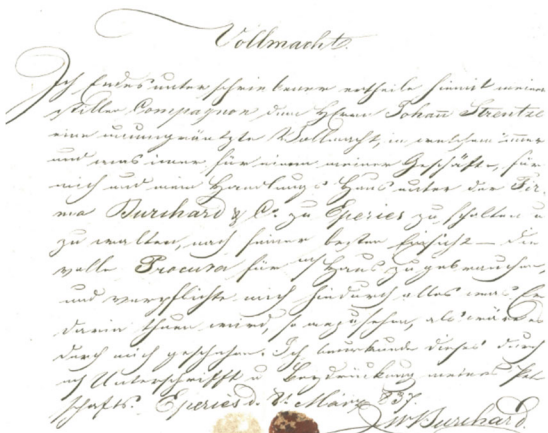 Vollmacht.
Ich Endesunterschriebener ertheile hiemit meinem
stillen Compagnon dem Herrn Johann Strentze
eine uneingeräntzte Vollmacht, in welchem immer
und was immer für einem meiner Geschäfte, für
mich und mein Handlungs Haus unter der Fir-
ma Burchard & Co. zu Eperies zu schalten u
zu walten, nach seiner besten Einsicht – die
volle Procura für Haus zu gebrauchen,
und verpflichte mich hiedurch alles was Er
darin thuen wird, so anzusehen, als wäre es
durch mich geschehen. Ich beurkunde dieses durch
Unterschrifft u Beydrückung meines Pet-
schafts. Eperies d. 8t März 837.
JWBurchard.